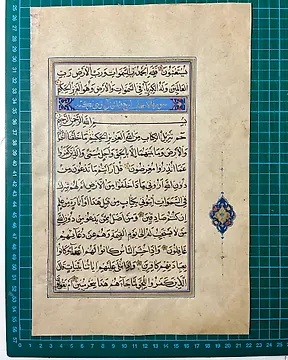 يستعتبون فلله الحمد رب السموات ورب الأرض رب
العالمين وله الكبرياء في السموات والأرض وهو العزيز الحكيم
بسم الله الرحمن الرحيم
حم تنزيل الكتاب من الله العزيز الحكيم ما خلقنا السموات
والأرض وما بينهما إلا بالحق وأجل مسمى والذين كفروا
عما أنذروا معرضون قل أرأيتم ما تدعون من
دون الله أروني ماذا خلقوا من الأرض أم لهم شرك
في السموات ائتوني بكتاب من قبل هذا أو أثارة من علم
إن كنتم صادقين ومن أضل ممن يدعو من دون الله
من لا يستجيب له إلى يوم القيمة وهم عن دعائهم
غافلون وإذا حشر الناس كانوا لهم أعداء وكانوا
بعبادتهم كافرين وإذا تتلى عليهم آياتنا بينات قال
الذين كفروا للحق لما جاءهم هذا سحر مبين أم يقولون